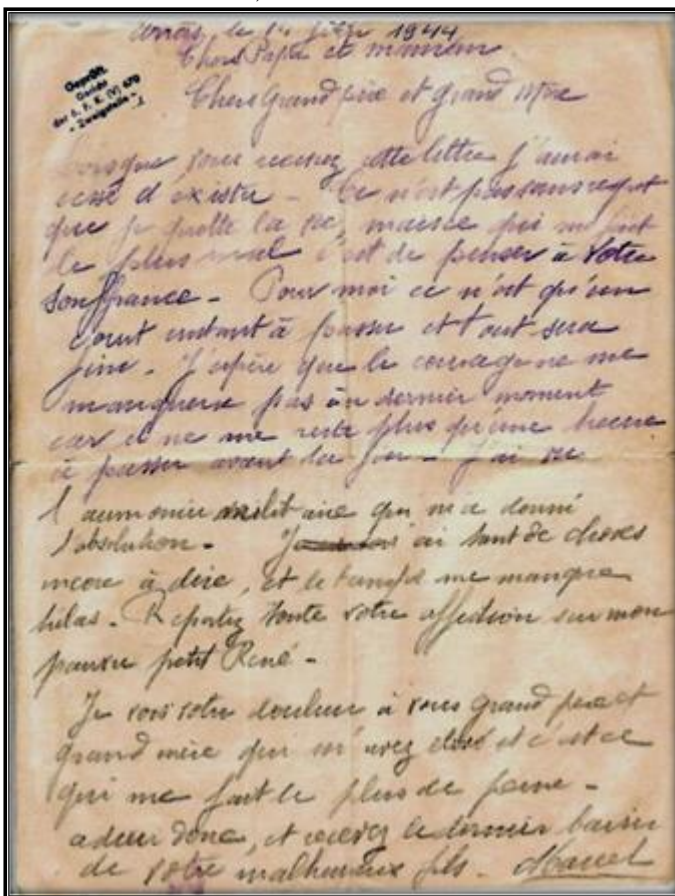 Arras, le 1er 1944
Chers Papa et maman
Chers Grand père et grand mère
Geprüft.
Gericht
der O. F. K. (V) 670
- Zweigstelle -
Lorsque vous recevrez cette lettre j'aurai
cessé d'exister - Ce n'est pas sans regret
que je quitte la vie, mais ce qui me fait
le plus mal c'est de penser à votre
souffrance - Pour moi ce n'est qu'un
court instant à passer et tout sera
fini - J'espère que le courage ne me
manquera pas au dernier moment
car il ne me reste plus qu'une heure
à passer avant la fin - J'ai vu
l'aumonier militaire qui m'a donné
l'absolution - J'ai tant de choses
encore à dire, et le temps me manque
hélas - Reportez toute votre affection sur mon
pauvre petit René -
Je vois votre douleur à vous grand père et
grand mère qui m'avez élevé et c'est ce
qui me fait le plus de peine -
adieu donc, et recevez le dernier baiser
de votre malheureux fils - Marcel